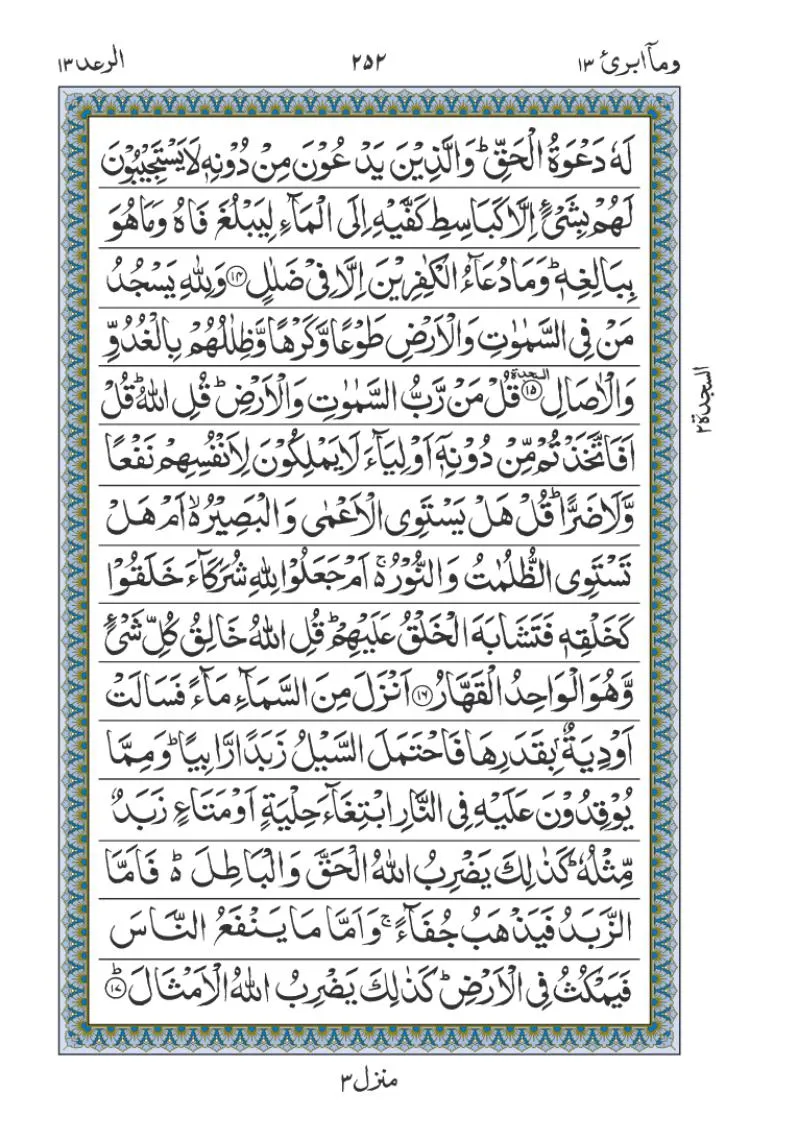 ومآ ابرئ ١٣
٢٥٢
الرعد ١٣
لَهٗ دَعْوَةُ الْحَقِّ ؕ وَالَّذِيْنَ يَدْعُوْنَ مِنْ دُوْنِهٖ لَا يَسْتَجِيْبُوْنَ
لَهُمْ بِشَىْءٍ اِلَّا كَبَاسِطِ كَفَّيْهِ اِلَى الْمَآءِ لِيَبْلُغَ فَاهُ وَمَا هُوَ
بِبَالِغِهٖ ؕ وَمَا دُعَآءُ الْكٰفِرِيْنَ اِلَّا فِىْ ضَلٰلٍ ﴿١٤﴾ وَلِلّٰهِ يَسْجُدُ
مَنْ فِى السَّمٰوٰتِ وَالْاَرْضِ طَوْعًا وَّكَرْهًا وَّظِلٰلُهُمْ بِالْغُدُوِّ
وَالْاٰصَالِ ﴿١٥﴾ السجدة قُلْ مَنْ رَّبُّ السَّمٰوٰتِ وَالْاَرْضِ ؕ قُلِ اللّٰهُ ؕ قُلْ
اَفَاتَّخَذْتُمْ مِّنْ دُوْنِهٖۤ اَوْلِيَآءَ لَا يَمْلِكُوْنَ لِاَنْفُسِهِمْ نَفْعًا
وَّلَا ضَرًّا ؕ قُلْ هَلْ يَسْتَوِى الْاَعْمٰى وَالْبَصِيْرُ ۙ اَمْ هَلْ
تَسْتَوِى الظُّلُمٰتُ وَالنُّوْرُ ۚ اَمْ جَعَلُوْا لِلّٰهِ شُرَكَآءَ خَلَقُوْا
كَخَلْقِهٖ فَتَشَابَهَ الْخَلْقُ عَلَيْهِمْ ؕ قُلِ اللّٰهُ خَالِقُ كُلِّ شَىْءٍ
وَّهُوَ الْوَاحِدُ الْقَهَّارُ ﴿١٦﴾ اَنْزَلَ مِنَ السَّمَآءِ مَآءً فَسَالَتْ
اَوْدِيَةٌۢ بِقَدَرِهَا فَاحْتَمَلَ السَّيْلُ زَبَدًا رَّابِيًا ؕ وَمِمَّا
يُوْقِدُوْنَ عَلَيْهِ فِى النَّارِ ابْتِغَآءَ حِلْيَةٍ اَوْ مَتَاعٍ زَبَدٌ
مِّثْلُهٗ ؕ كَذٰلِكَ يَضْرِبُ اللّٰهُ الْحَقَّ وَالْبَاطِلَ ؕ فَاَمَّا
الزَّبَدُ فَيَذْهَبُ جُفَآءً ۚ وَاَمَّا مَا يَنْفَعُ النَّاسَ
فَيَمْكُثُ فِى الْاَرْضِ ؕ كَذٰلِكَ يَضْرِبُ اللّٰهُ الْاَمْثَالَ ؕ ﴿١٧﴾
السجدة ٢
منزل ٣